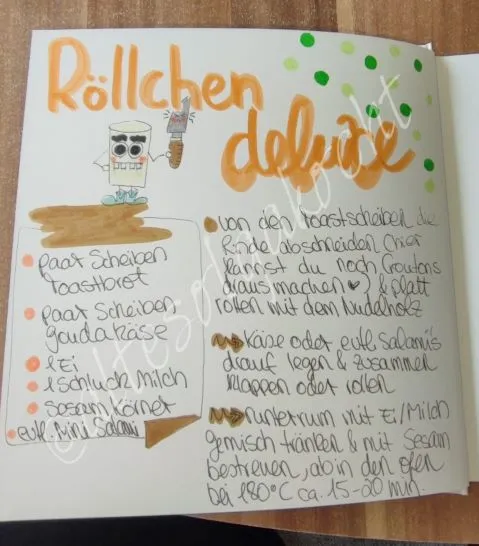 Röllchen
deluxe
paar Scheiben
Toastbrot
paar Scheiben
Goudakäse
1 Ei
1 Schluck Milch
Sesam Körner
evtl. Mini Salami
von den Toastscheiben die
Rinde abschneiden (hier
kannst du noch Croutons
draus machen) & platt
rollen mit dem Nudelholz
Käse oder evtl. Salamis
drauf legen & zusammen
klappen oder rollen
rundherum mit Ei/Milch
gemisch tränken & mit Sesam
bestreuen, ab in den Ofen
bei 180°C ca. 15-20 min.